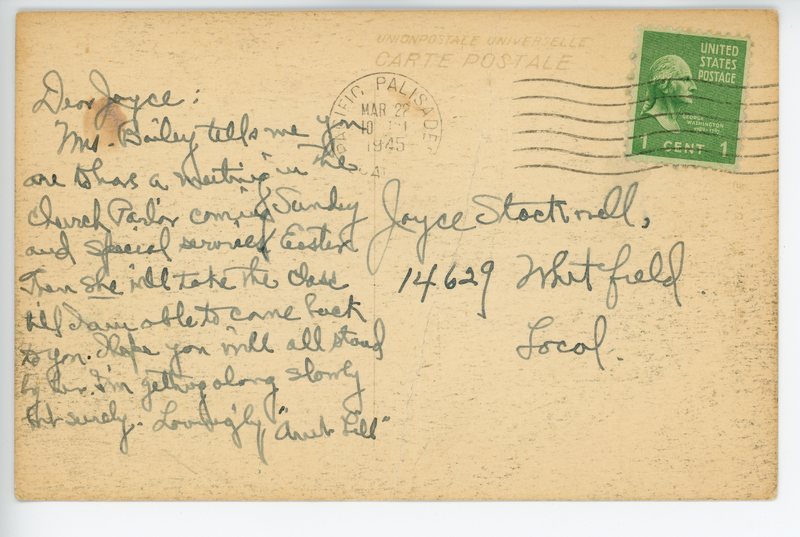 UNION POSTALE UNIVERSELLE
CARTE POSTALE
PACIFIC PALISADES
MAR 22
10
1945
UNITED
STATES
POSTAGE
GEORGE
WASHINGTON
1 CENT 1
Dear Joyce:
Mrs. Bailey tells me you
are to have a meeting in the
Church Parlor coming Sunday
and special services Easter
Then she will take the class
till I am able to come back
to you. Hope you will all stand
by her. I'm getting along slowly
but surely. Lovingly, "Aunt Lill"
Joyce Stockwell,
14629 Whitfield
Local.